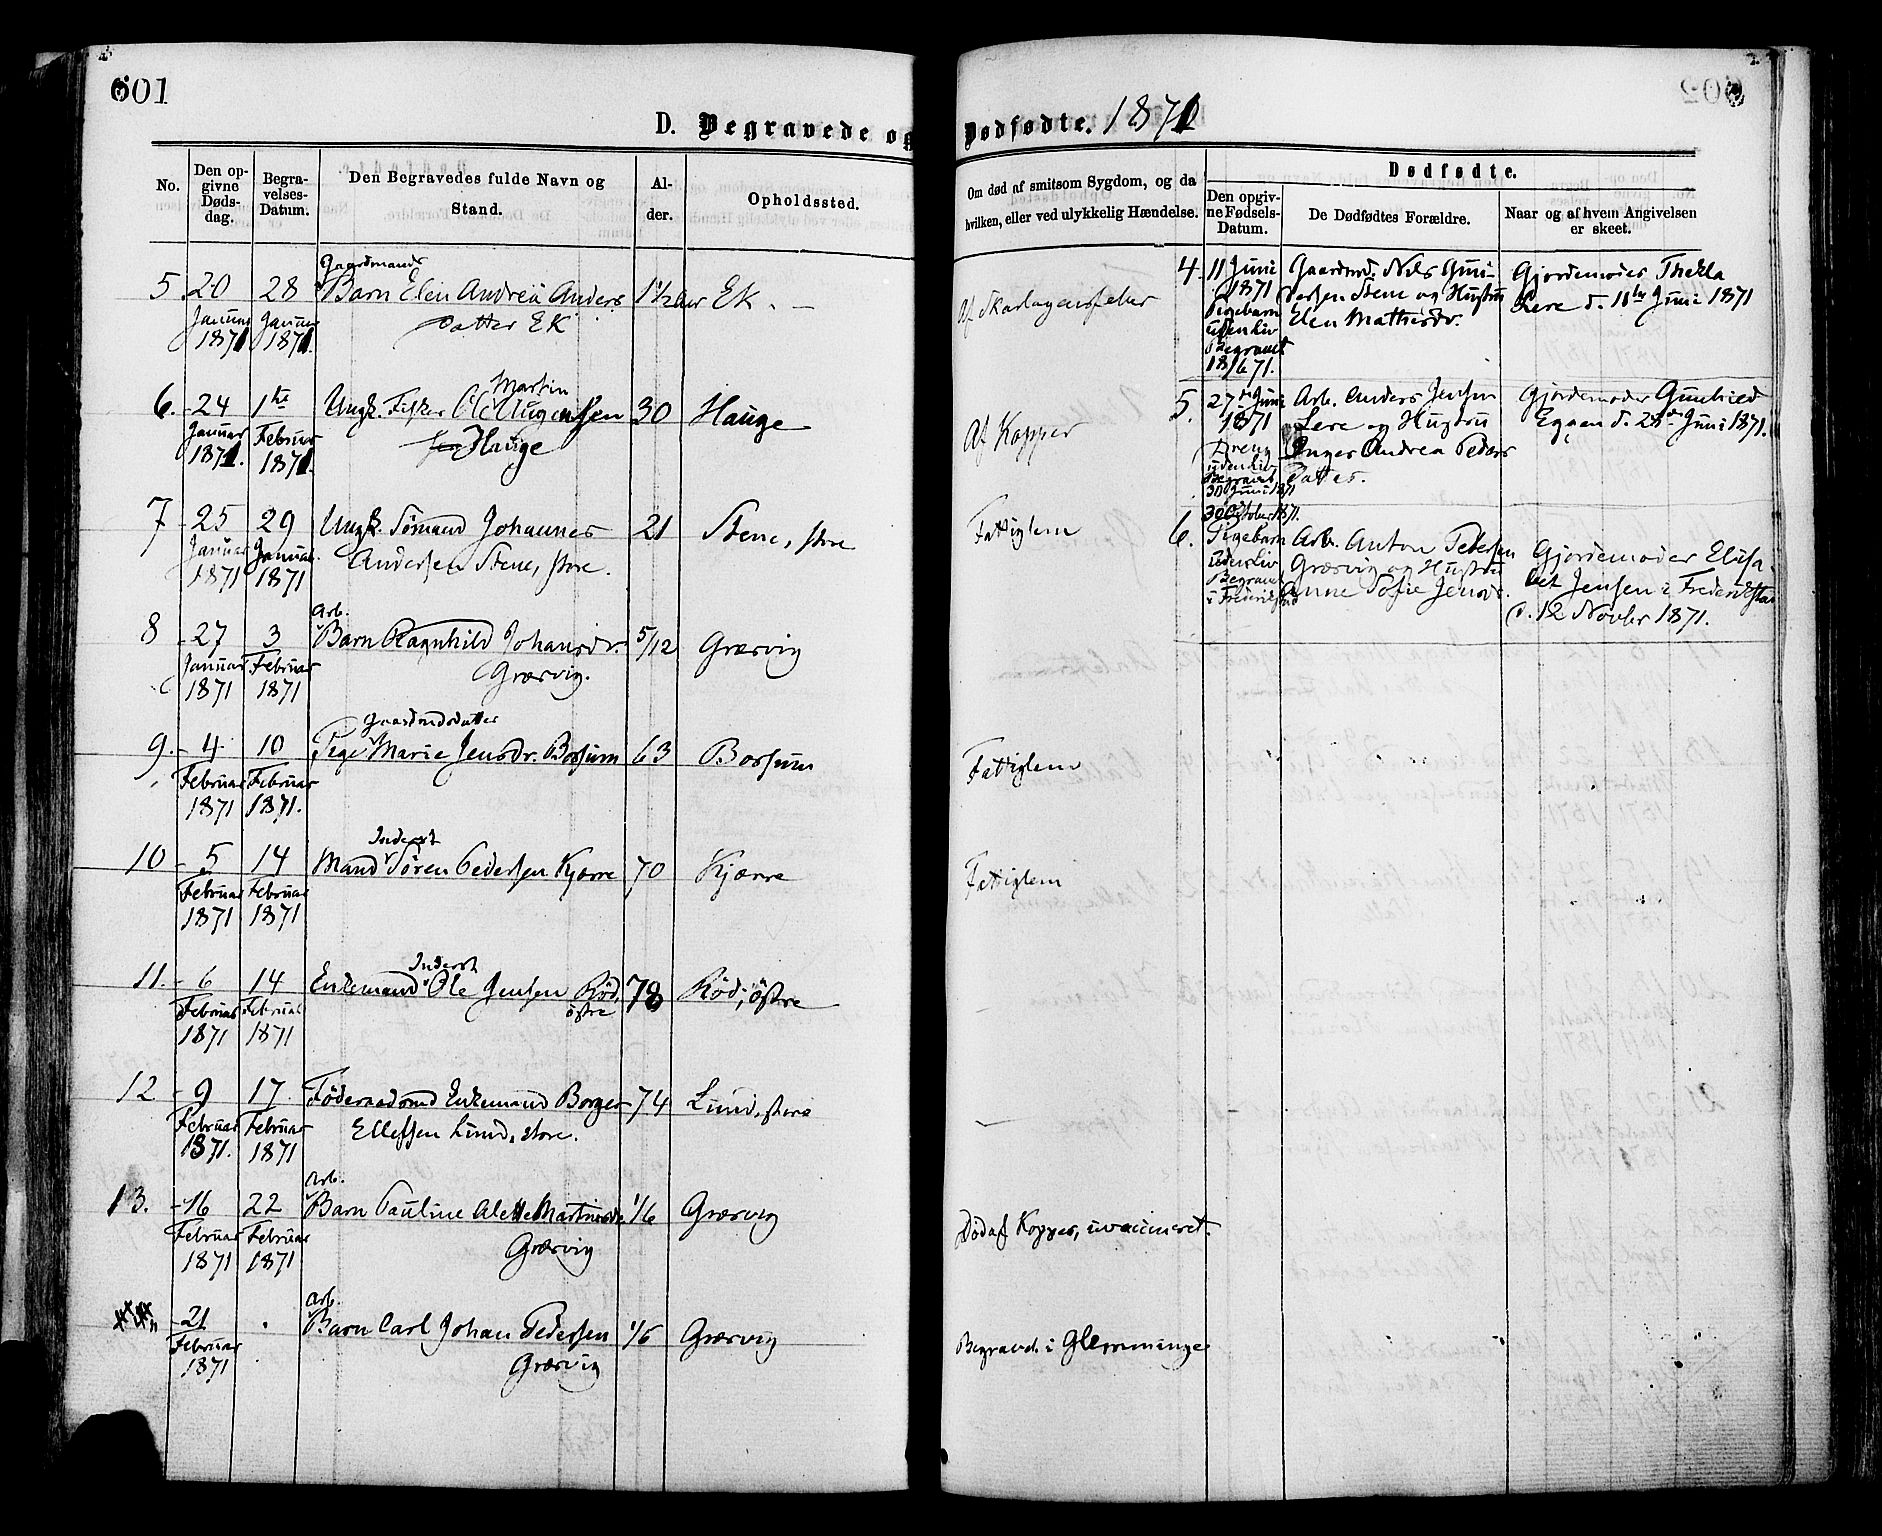 601
D. Begravede og Dødfødte. 1871
No.
Den opgivne Dødsdag.
Begravelses-Datum.
Den Begravedes fulde Navn og Stand.
Alder.
Opholdssted.
Om død af smitsom Sygdom, og da
hvilken, eller ved ulykkelig Hændelse.
Dødfødte.
Den opgivne Fødsels-Datum.
De Dødfødtes Forældre.
Naar og af hvem Angivelsen er skeet.
Gaardmands
5. 20 28 Barn Elen Andrea Anders 1½ aar Ek. — Af Skarlagensfeber
Januar Januar datter Ek
1871 1871.
Martin
6. 24 1ste Ungk. Fisker Ole Augensen 30 Hauge Af Kopper
Januar Februar Hauge
1871. 1871.
7 25 29 Ungk. Sømand Johannes 21 Stene, store Fattiglem
Januar Januar Andersen Stene, store.
1871 1871
Arb.
8 27 3 Barn Ragnhild Johansdr. 5/12 Græsvig
Januar Februar Græsvig.
1871 1871
Gaardmdsdatter
9. 4 10 Pige Marie Jensdr. Borsum 63 Borsum Fattiglem
Februar Februar
1871 1871.
Inderst
10 5 14 Mand Søren Pedersen Kjærre 70 Kjærre Fattiglem
Februar Februar
1871 1871
Inderst
11. 6 14 Enkemand Ole Jensen Röd, 78 Röd, östre —
Februar Februar östre
1871 1871
12 9 17 Föderaadsmd Enkemand Borger 74 Lund, store —
Februar Februar Ellefsen Lund, store.
1871. 1871
Arb.
13. 16 22 Barn Pauline Alette Martinsdr. 1/6 Græsvig Død af Kopper, uvaccineret.
Februar Februar Græsvig
1871 1871
Arb.
21 Barn Carl Johan Pedersen 1/6 Græsvig Begravet i Glemminge
Februar Græsvig
1871
4. 11 Juni Gaardmd. Nils Gun- Gjordemoder Thekla
1871 dersen Stene og Hustru Lere d. 11te Juni 1871
Pigebarn Elen Mathisdr.
uden Liv
Begravet
18/6 71.
5. 27de Juni Arb. Anders Jensen Gjordemoder Gunhild
1871 Lere og Hustru Egaen d. 28de Juni 1871.
Dreng Inger Andrea Peders
uden Liv Datter.
Begravet
30 Juni 1871
30 October 1871.
6. Pigebarn Arb. Anton Pedersen Gjordemoder Elisa-
uden Liv Græsvig og Hustru bet Jensen i Frederikstad
Begravet Anne Sofie Jensdr. d. 12 Novbr 1871.
i Frederikstad